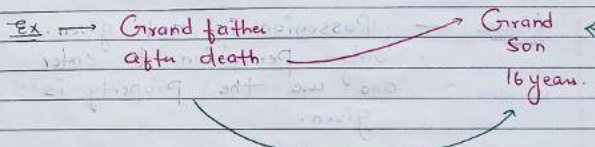 Ex → Grand father
after death
Grand
Son
16 years.